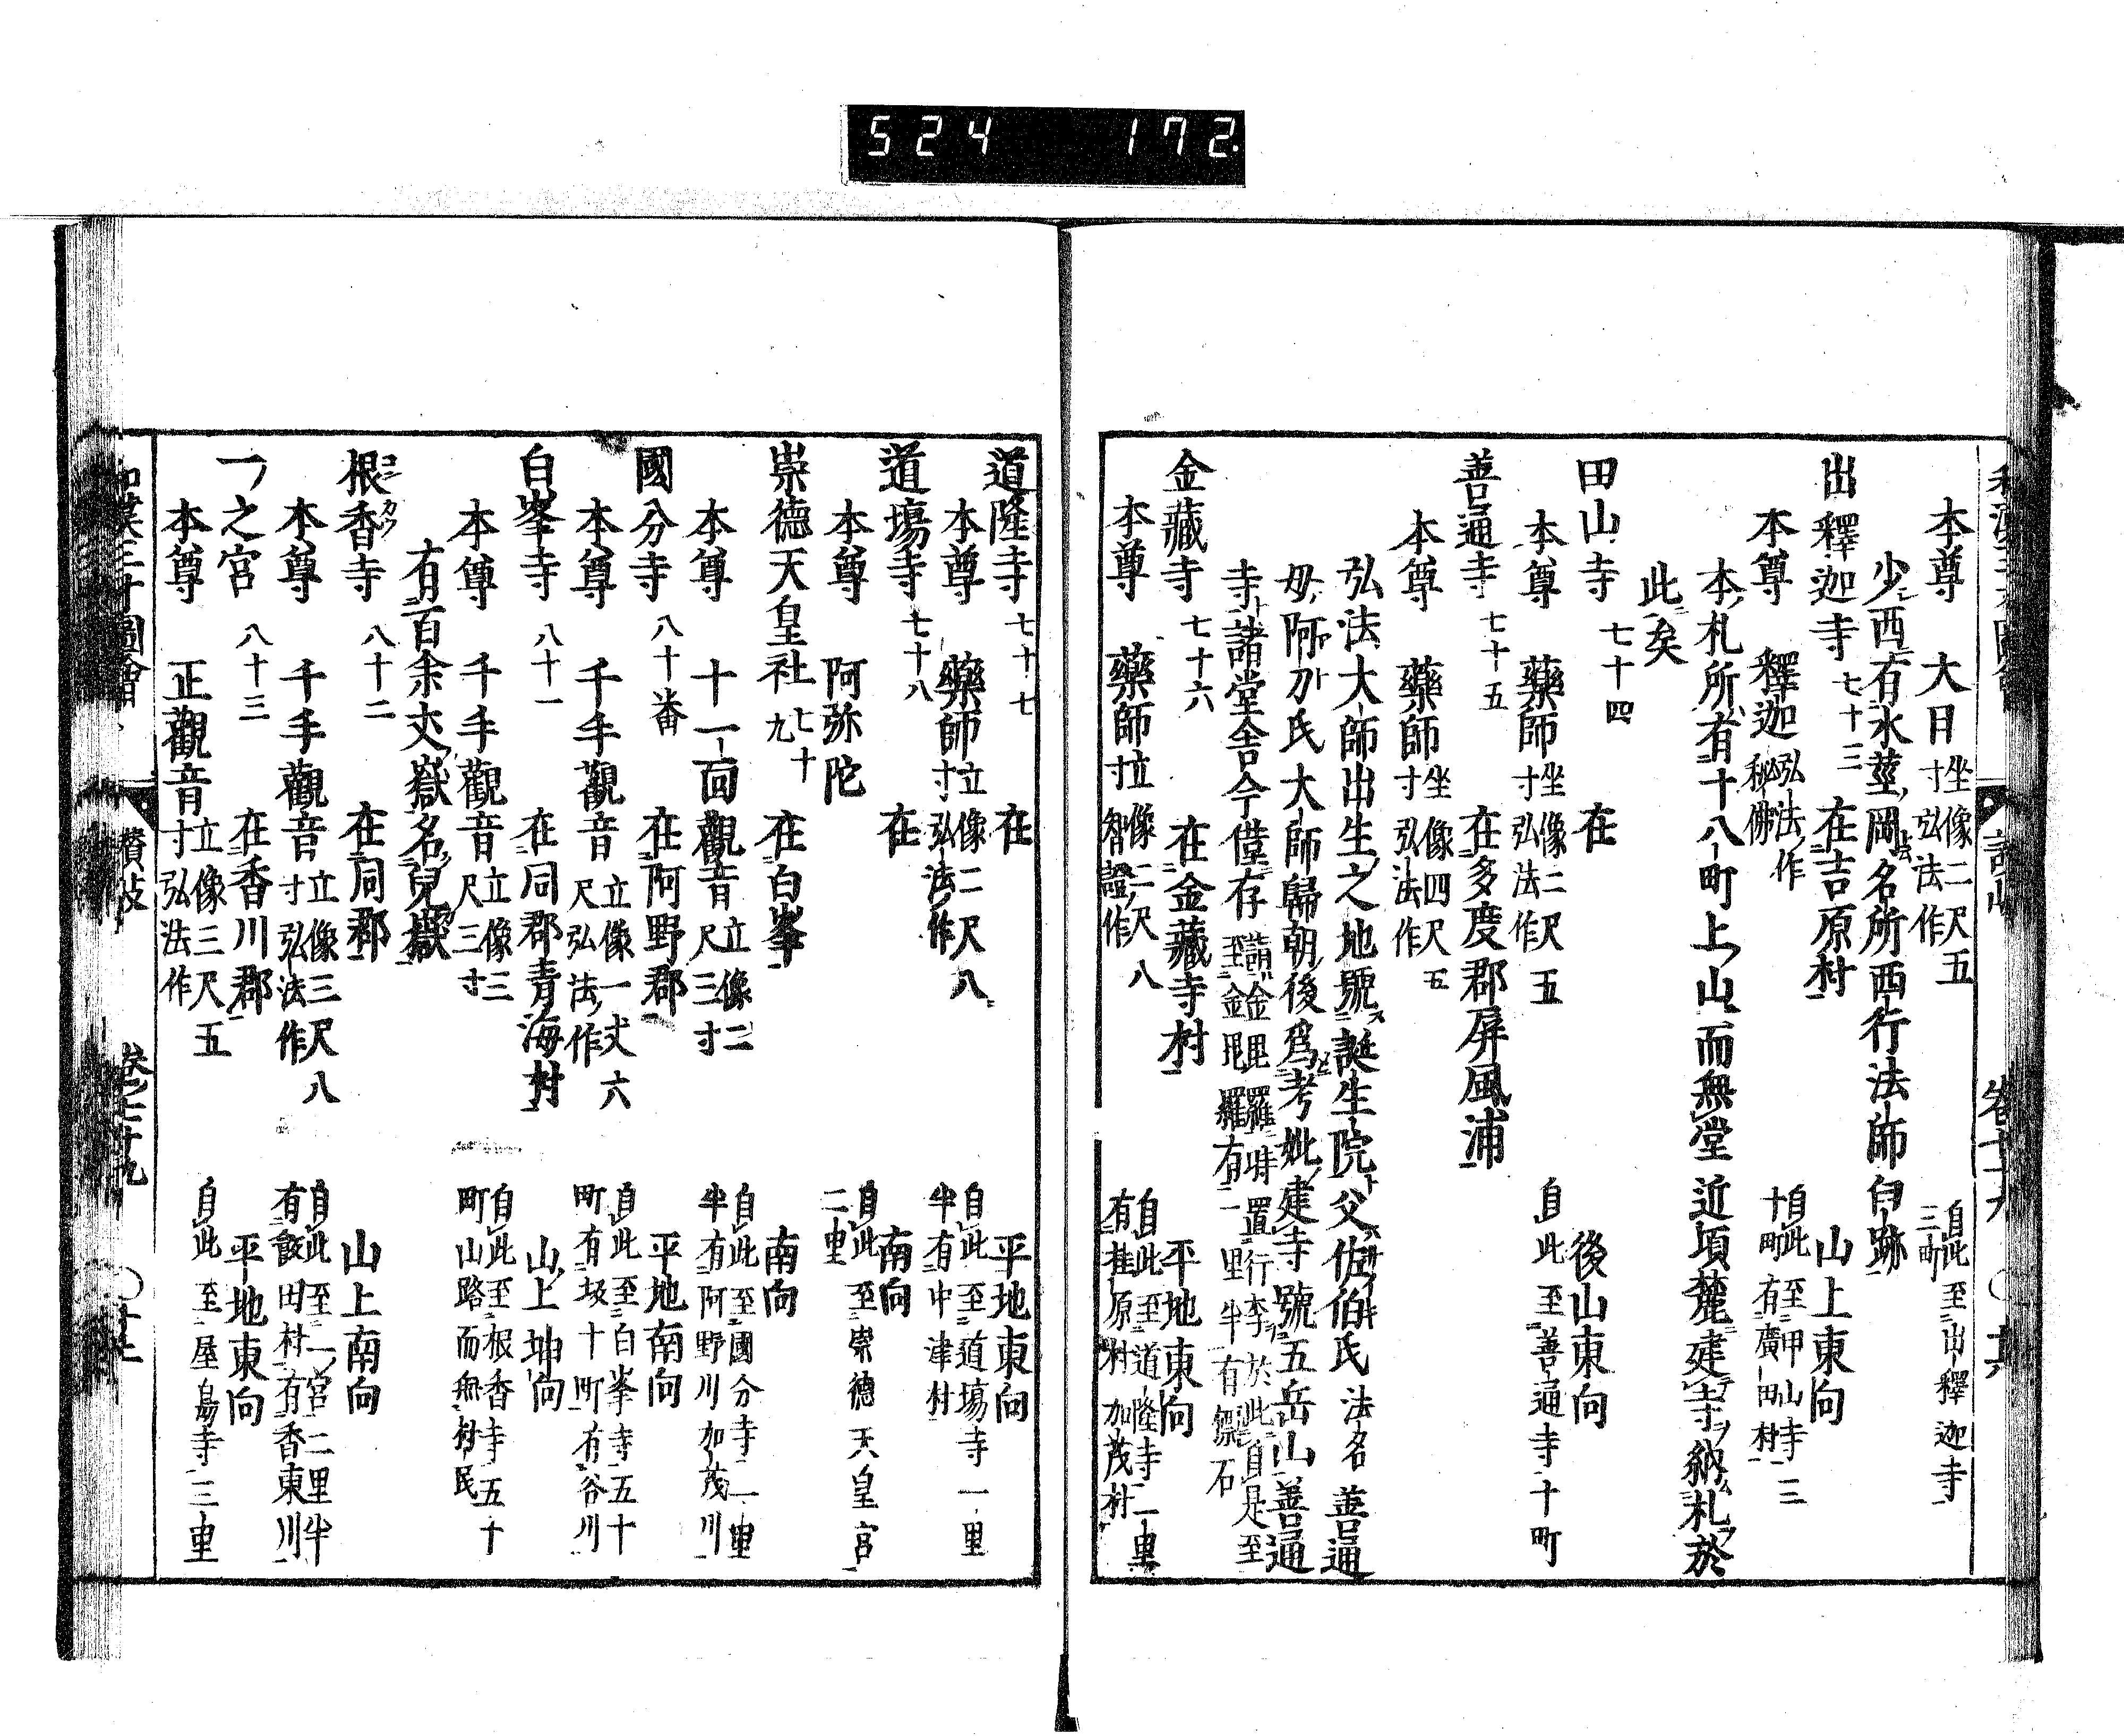 524 172.
本尊 大日 坐像二尺五寸弘法作 自此至出釋迦寺三町
少西有水莖岡云名所西行法師旧跡
出釋迦寺 七十三 在吉原村 山上東向
本尊 釋迦 弘法作秘佛 自此至甲山寺三十町有廣田村
本札所有十八町上山而無堂近頃麓建寺納札於
此矣
田山寺 七十四 在 後山東向
本尊 藥師 坐像二尺五寸弘法作 自此至善通寺十町
善通寺 七十五 在多度郡屏風浦
本尊 藥師 坐像四尺五寸弘法作
弘法大師出生之地號誕生院父佐伯氏法名善通
母阿刀氏大師歸朝後爲考妣建寺號五岳山善通
寺諸堂舍今僅存 詣金毘羅時置行李於此自是至金毘羅有二里半有標石
金藏寺 七十六 在金藏寺村 平地東向
本尊 藥師 立像二尺八寸智證作 自此至道隆寺一里有桂原村加茂村
道隆寺 七十七 在 平地東向
本尊 藥師 立像二尺八寸弘法作 自此至道場寺一里半有中津村
道場寺 七十八 在 南向
本尊 阿弥陀 自此至崇德天皇宮二里
崇德天皇社 七十九 在白峯 南向
本尊 十一面觀音 立像二尺三寸 自此至國分寺一里半有阿野川加茂川
國分寺 八十番 在阿野郡 平地南向
本尊 千手觀音 立像一丈六尺弘法作 自此至白峯寺五十町有坂十町有谷川
白峯寺 八十一 在同郡青海村 山上坤向
本尊 千手觀音 立像三尺三寸 自此至根香寺五十町山路而無村民
有百余丈嶽名兒嶽
根香寺 八十二 在同郡 山上南向
本尊 千手觀音 立像三尺八寸弘法作 自此至一宮二里半有飯田村有香東川
一之宮 八十三 在香川郡 平地東向
本尊 正觀音 立像三尺五寸弘法作 自此至屋島寺三里